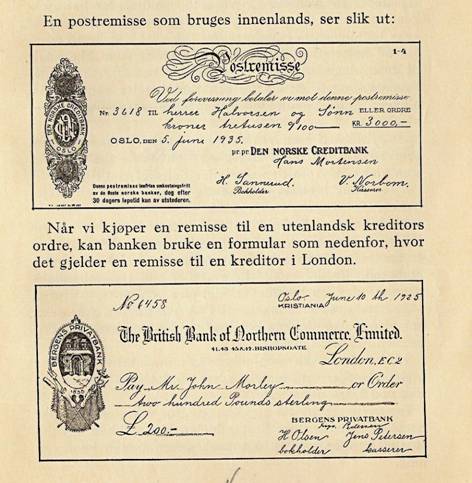 En postremisse som bruges innenlands, ser slik ut:
1-4
Postremisse
Ved forevisning betaler vi mot denne postremisse
Nr. 3618 til herrer Halvorsen og Sønn ELLER ORDRE
kroner tretusen 0/100 KR. 3000,-
OSLO, DEN 5. june 1935.
pr. pr. DEN NORSKE CREDITBANK
Hans Mortensen
H. Sannerud V. Norbom
Bokholder Kasserer
DEN NORSKE CREDITBANK
OSLO
Denne postremisse innfries omkostningsfritt
av de fleste norske banker, dog efter
30 dagers løpetid kun av utstederen.
Når vi kjøper en remisse til en utenlandsk kreditors
ordre, kan banken bruke en formular som nedenfor, hvor
det gjelder en remisse til en kreditor i London.
No 6458 Oslo June 10 th 1925
KRISTIANIA
BERGENS PRIVATBANK
1855
The British Bank of Northern Commerce, Limited.
41,43 45 & 47, BISHOPSGATE
London, EC2
Pay Mr. John Morley or Order
two hundred Pounds sterling
£ 200:-
BERGENS PRIVATBANK
H Olsen Jens Petersen
bokholder kasserer